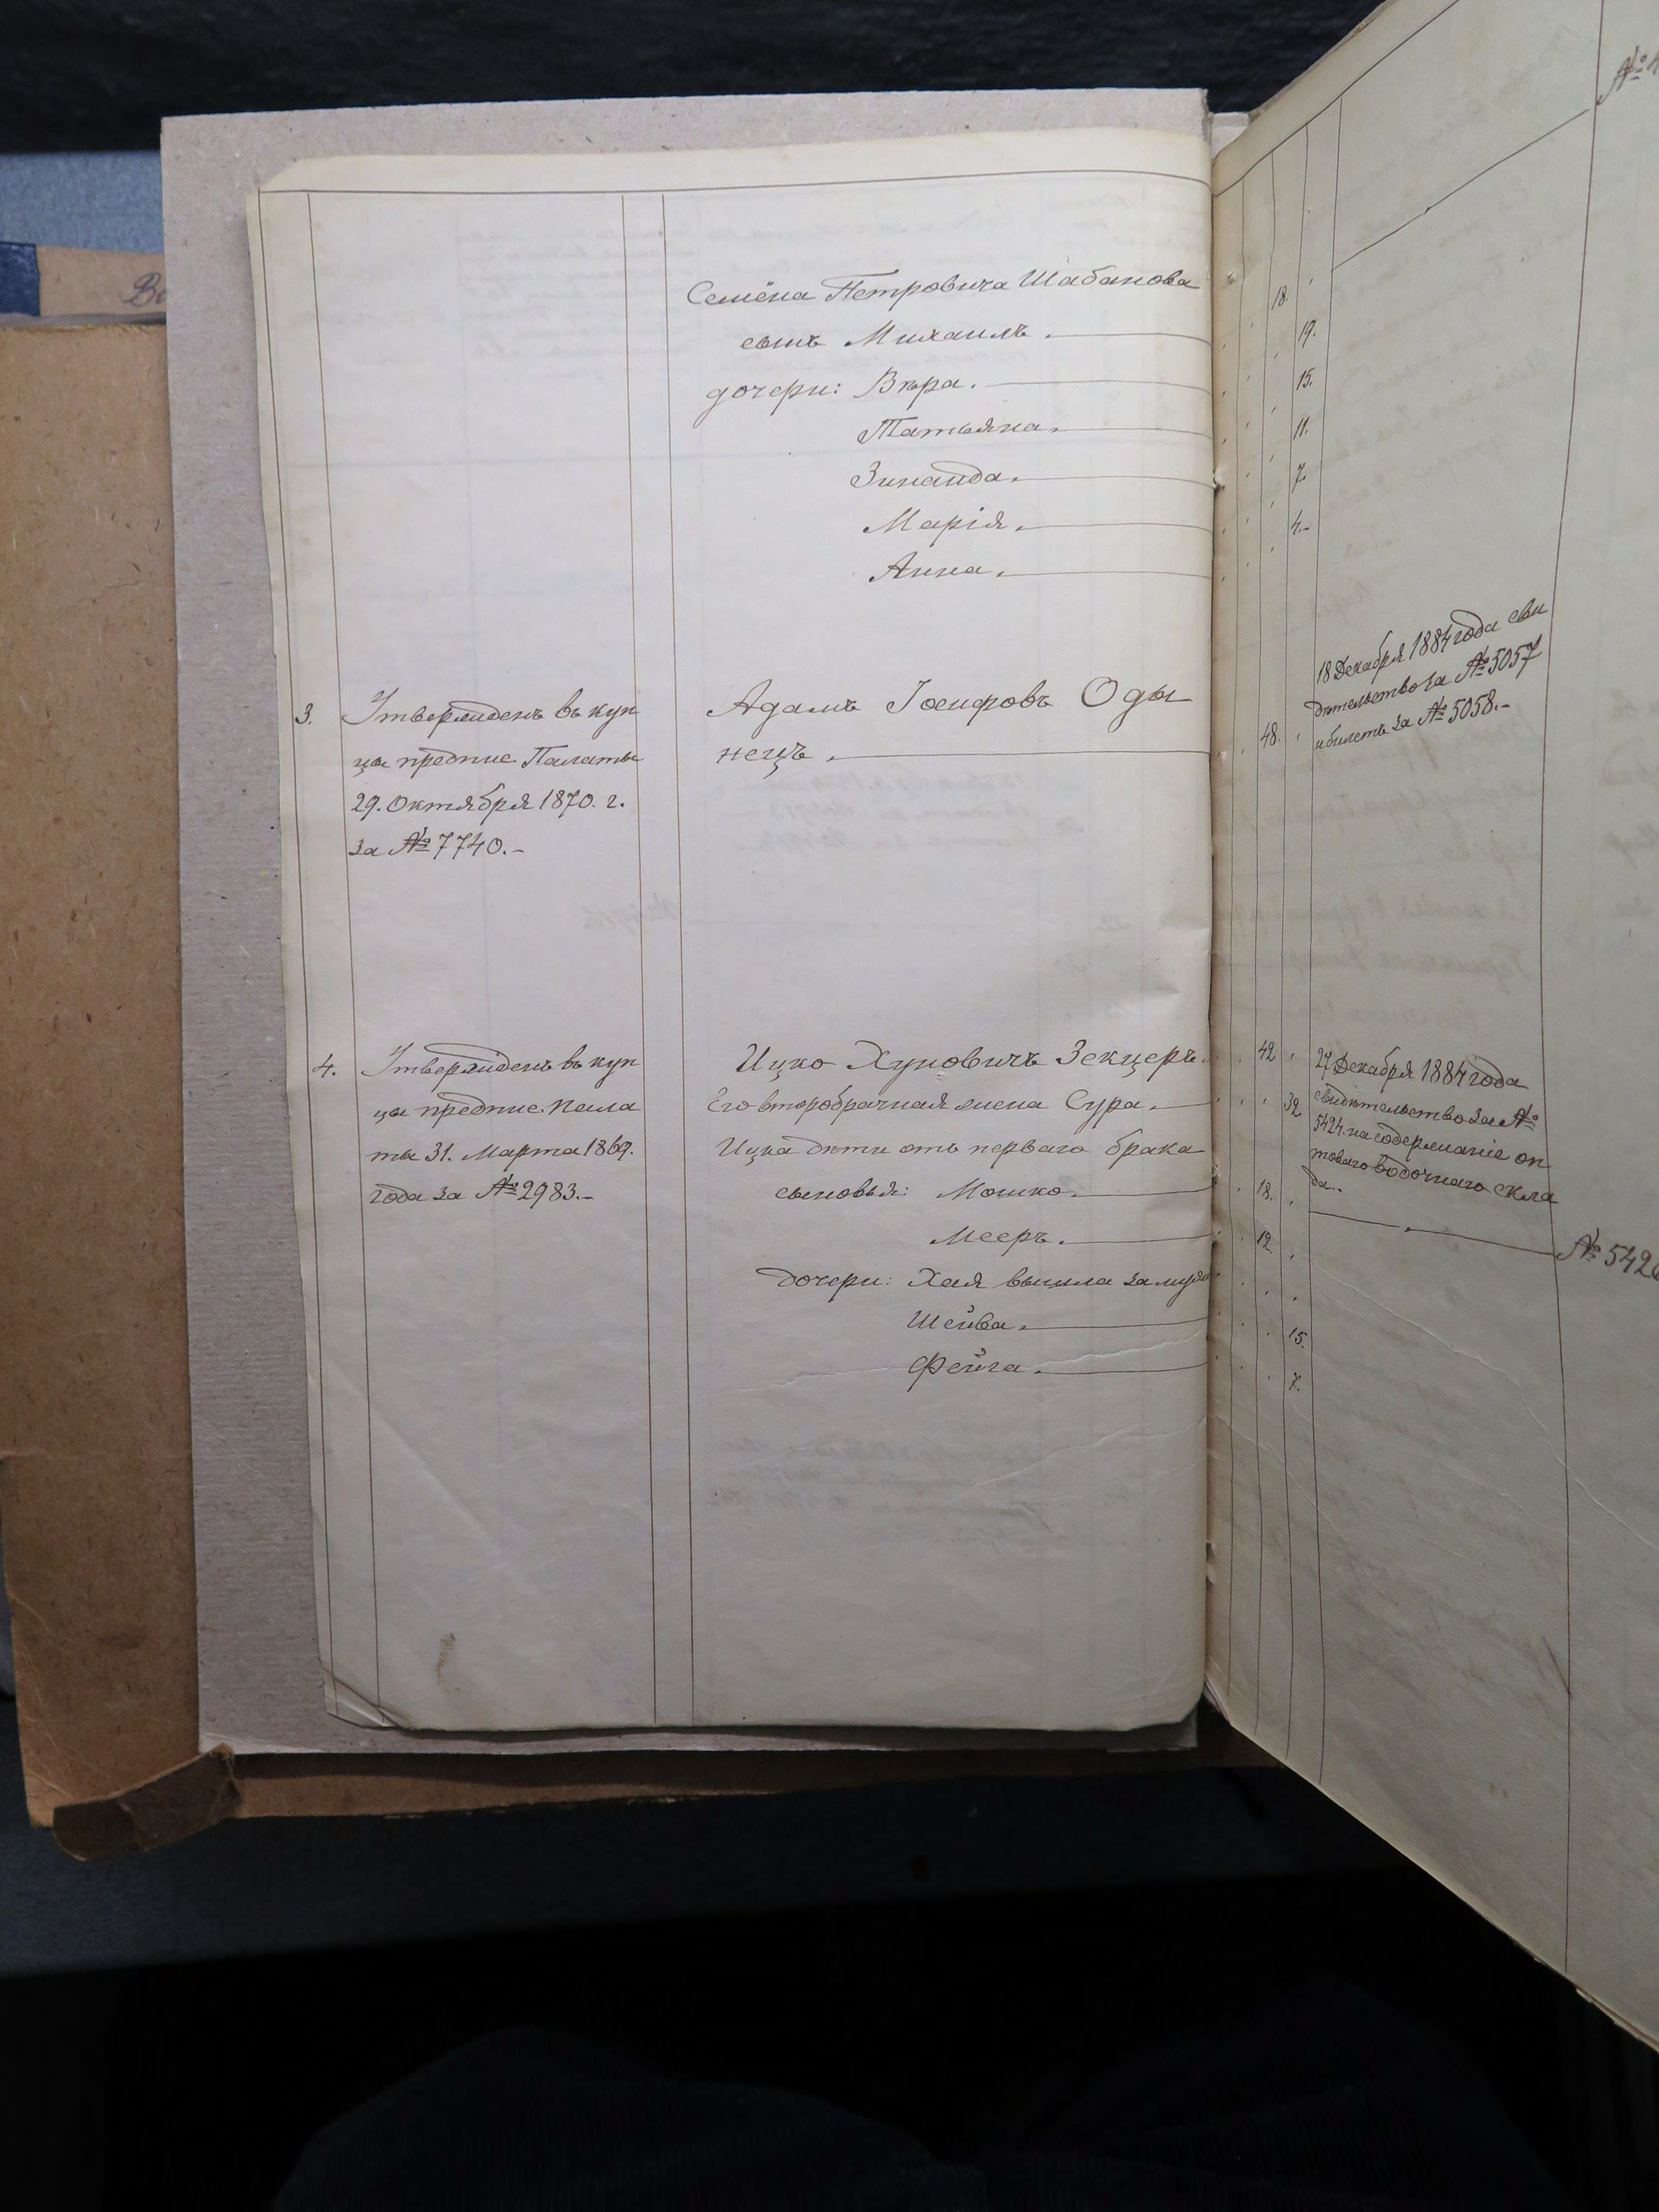 Семёна Петровича Шабанова
сынъ Михаилъ. 18.
дочери: Вѣра. 19.
Татьяна. 15.
Зинаида. 11.
Марія. 7.
Анна. 4.-
3. Утвержденъ въ куп
цы предпис. Палаты
29. Октября 1870. г.
за № 7740.-
Адамъ Іосифовъ Оды
нецъ. 48.
18 Декабря 1884 года сви
дѣтельство за № 5057
и билетъ за № 5058.-
4. Утвержденъ въ куп
цы предпис. Пала
ты 31. Марта 1869.
года за № 2983.-
Ицко Хуновичъ Зекцеръ. 42
Его второбрачная жена Сура. 32
Ицка дѣти отъ перваго брака
сыновья: Мошко. 18.
Мееръ. 12.
дочери: Хая вышла замужъ
Шейва. 15.
Фейга. 7.
27 Декабря 1884 года
свидѣтельство за №
5424. на содержаніе оп
товаго водочнаго скла
да.-
№ 542